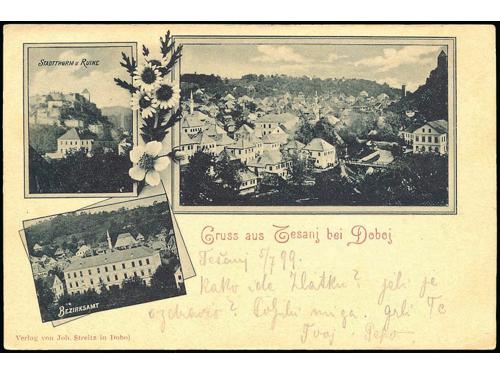 STADTTHURM U. RUINE
BEZIRKSAMT
Gruss aus Tesanj bei Doboj
Tešanj 5/7 99.
Kako ide Zlatku? jeli je
ozdravio? Pošlji mi ga. grli Te
Tvoj Pepo
Verlag von Joh. Streitz in Doboj